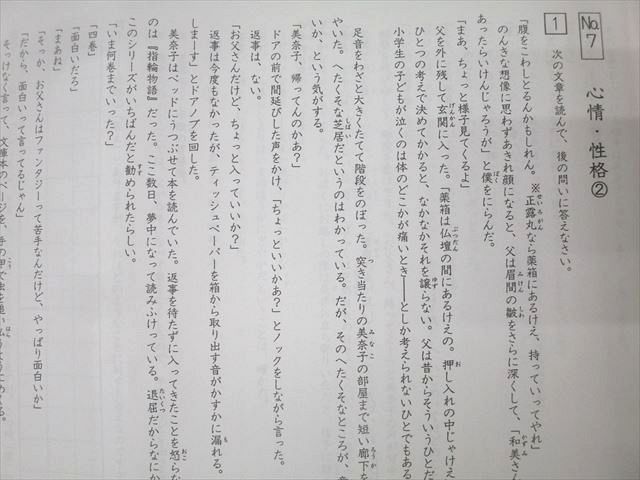 No.7 心情・性格②
1 次の文章を読んで、後の問いに答えなさい。
「腹をこわしとるんかもしれん。※正露丸なら薬箱にあるけえ、持っていってやれ」
のんきな想像に思わずあきれ顔になると、父は眉間の皺をさらに深くして、「和美さん
あったらいけんじゃろうが」と僕をにらんだ。
「まあ、ちょっと様子見てくるよ」
父を外に残して玄関に入った。「薬箱は仏壇の間にあるけえの。押し入れの中じゃけえ
ひとつの考えで決めてかかると、なかなかそれを譲らない。父は昔からそういうひとだ
小学生の子どもが泣くのは体のどこかが痛いとき――としか考えられないひとでもある
足音をわざと大きくたてて階段をのぼった。突き当たりの美奈子の部屋まで短い廊下を
やいた。へたくそな芝居だというのはわかっている。だが、そのへたくそなところが、
いか、という気がする。
「美奈子、帰ってんのかあ？」
ドアの前で間延びした声をかけ、「ちょっといいかあ？」とノックをしながら言った。
返事は、ない。
「お父さんだけど、ちょっと入っていいか？」
返事は今度もなかったが、ティッシュペーパーを箱から取り出す音がかすかに漏れる。
しまーす」とドアノブを回した。
美奈子はベッドにうつぶせて本を読んでいた。返事を待たずに入ってきたことを怒らな
のは『指輪物語』だった。ここ数日、夢中になって読みふけっている。退屈だからなにか
このシリーズがいちばんだと勧められたらしい。
「いま何巻までいった？」
「四巻」
「面白いだろ」
「まあね」
「そっか、お父さんはファンタジーって苦手なんだけど、やっぱり面白いか」
「だから、面白いって言ってるじゃん」
そっけなく言って、文庫本のページを、手の